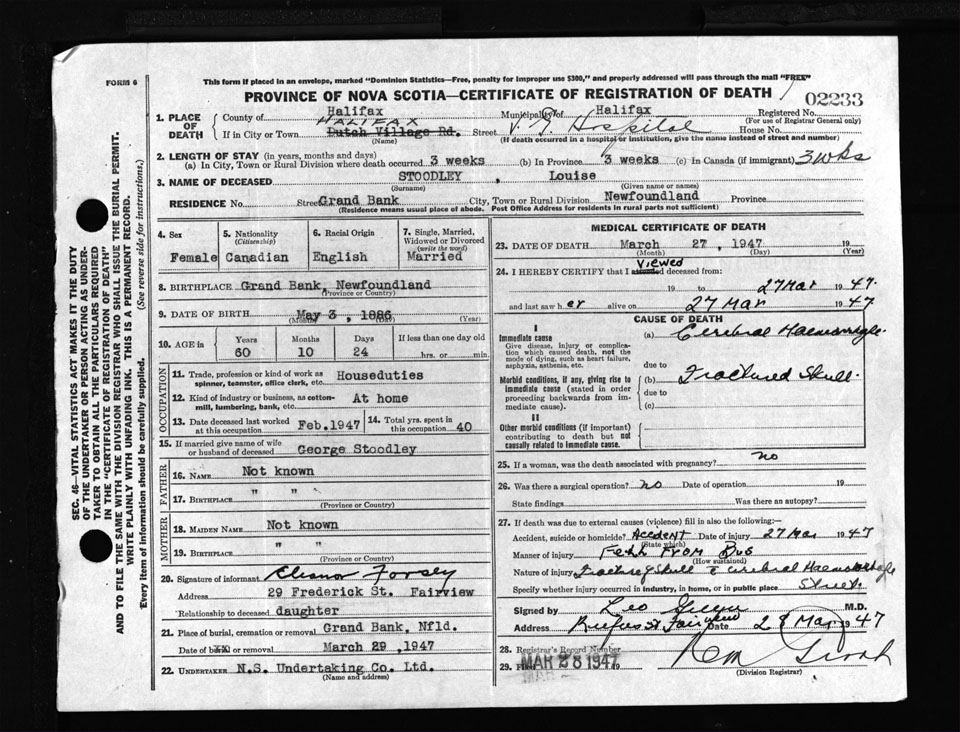 FORM 6
This form if placed in an envelope, marked "Dominion Statistics—Free, penalty for improper use $300," and properly addressed will pass through the mail "FREE"
PROVINCE OF NOVA SCOTIA—CERTIFICATE OF REGISTRATION OF DEATH
02233
1. PLACE OF DEATH
County of Halifax Municipality of Halifax Registered No.
(For use of Registrar General only)
If in City or Town HALIFAX Dutch Village Rd. Street V. G. Hospital House No.
(Name) (If death occurred in a hospital or institution, give the name instead of street and number)
2. LENGTH OF STAY (in years, months and days)
(a) In City, Town or Rural Division where death occurred 3 weeks (b) In Province 3 weeks (c) In Canada (if immigrant) 3 wks
3. NAME OF DECEASED STOODLEY, Louise
(Surname) (Given name or names)
RESIDENCE No. Street Grand Bank City, Town or Rural Division Newfoundland Province
(Residence means usual place of abode. Post Office Address for residents in rural parts not sufficient)
4. Sex
Female
5. Nationality
(Citizenship)
Canadian
6. Racial Origin
English
7. Single, Married, Widowed or Divorced
(write the word)
Married
8. BIRTHPLACE Grand Bank, Newfoundland
(Province or Country)
9. DATE OF BIRTH May 3, 1886
(Month) (Day) (Year)
10. AGE in
Years Months Days If less than one day
60 10 24 hrs. or min.
OCCUPATION
11. Trade, profession or kind of work as spinner, teamster, office clerk, etc. Houseduties
12. Kind of industry or business, as cotton-mill, lumbering, bank, etc. At home
13. Date deceased last worked at this occupation Feb. 1947
14. Total yrs. spent in this occupation 40
15. If married give name of wife or husband of deceased George Stoodley
FATHER
16. NAME Not known
17. BIRTHPLACE " "
(Province or Country)
MOTHER
18. MAIDEN NAME Not known
19. BIRTHPLACE " "
(Province or Country)
20. Signature of informant Eleanor Forsey
Address 29 Frederick St. Fairview
Relationship to deceased daughter
21. Place of burial, cremation or removal Grand Bank, Nfld.
Date of burial or removal March 29, 1947
22. UNDERTAKER N.S. Undertaking Co. Ltd.
(Name and address)
MEDICAL CERTIFICATE OF DEATH
23. DATE OF DEATH March 27, 1947 19
(Month) (Day) (Year)
24. I HEREBY CERTIFY that I Viewed attended deceased from:
19 to 27 Mar 1947
and last saw her alive on 27 Mar 1947
CAUSE OF DEATH
I
Immediate cause
Give disease, injury or complication which caused death, not the mode of dying, such as heart failure, asphyxia, asthenia, etc.
(a) Cerebral Haemorrhage
due to
Morbid conditions, if any, giving rise to immediate cause (stated in order proceeding backwards from immediate cause).
(b) Fractured Skull.
due to
(c)
II
Other morbid conditions (if important) contributing to death but not causally related to immediate cause.
25. If a woman, was the death associated with pregnancy? no
26. Was there a surgical operation? no Date of operation 19
State findings Was there an autopsy?
27. If death was due to external causes (violence) fill in also the following:—
Accident, suicide or homicide? Accident Date of injury 27 Mar 1947
(State which)
Manner of injury Fell From Bus
(How sustained)
Nature of injury Fracture of Skull c Cerebral Haemorrhage
Specify whether injury occurred in industry, in home, or in public place Street.
Signed by Leo M.D.
Address Rufus St Fairview Date 28 Mar 1947
28. Registrar's Record Number
29. MAR 28 1947 19
(Division Registrar)
SEC. 46—VITAL STATISTICS ACT MAKES IT THE DUTY OF THE UNDERTAKER OR PERSON ACTING AS UNDERTAKER TO OBTAIN ALL THE PARTICULARS REQUIRED IN THE "CERTIFICATE OF REGISTRATION OF DEATH" AND TO FILE THE SAME WITH THE DIVISION REGISTRAR WHO SHALL ISSUE THE BURIAL PERMIT.
WRITE PLAINLY WITH UNFADING INK. THIS IS A PERMANENT RECORD.
Every item of information should be carefully supplied. (See reverse side for instructions.)